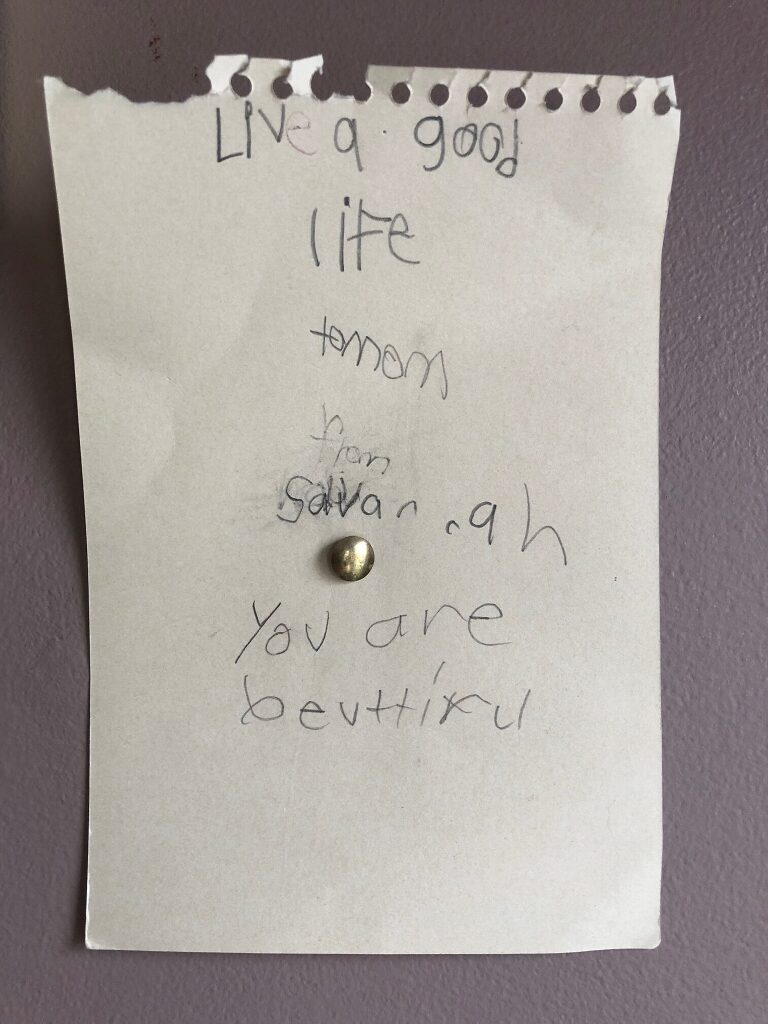 Live a good
life
tomom
from
Savannah
You are
beuttiful